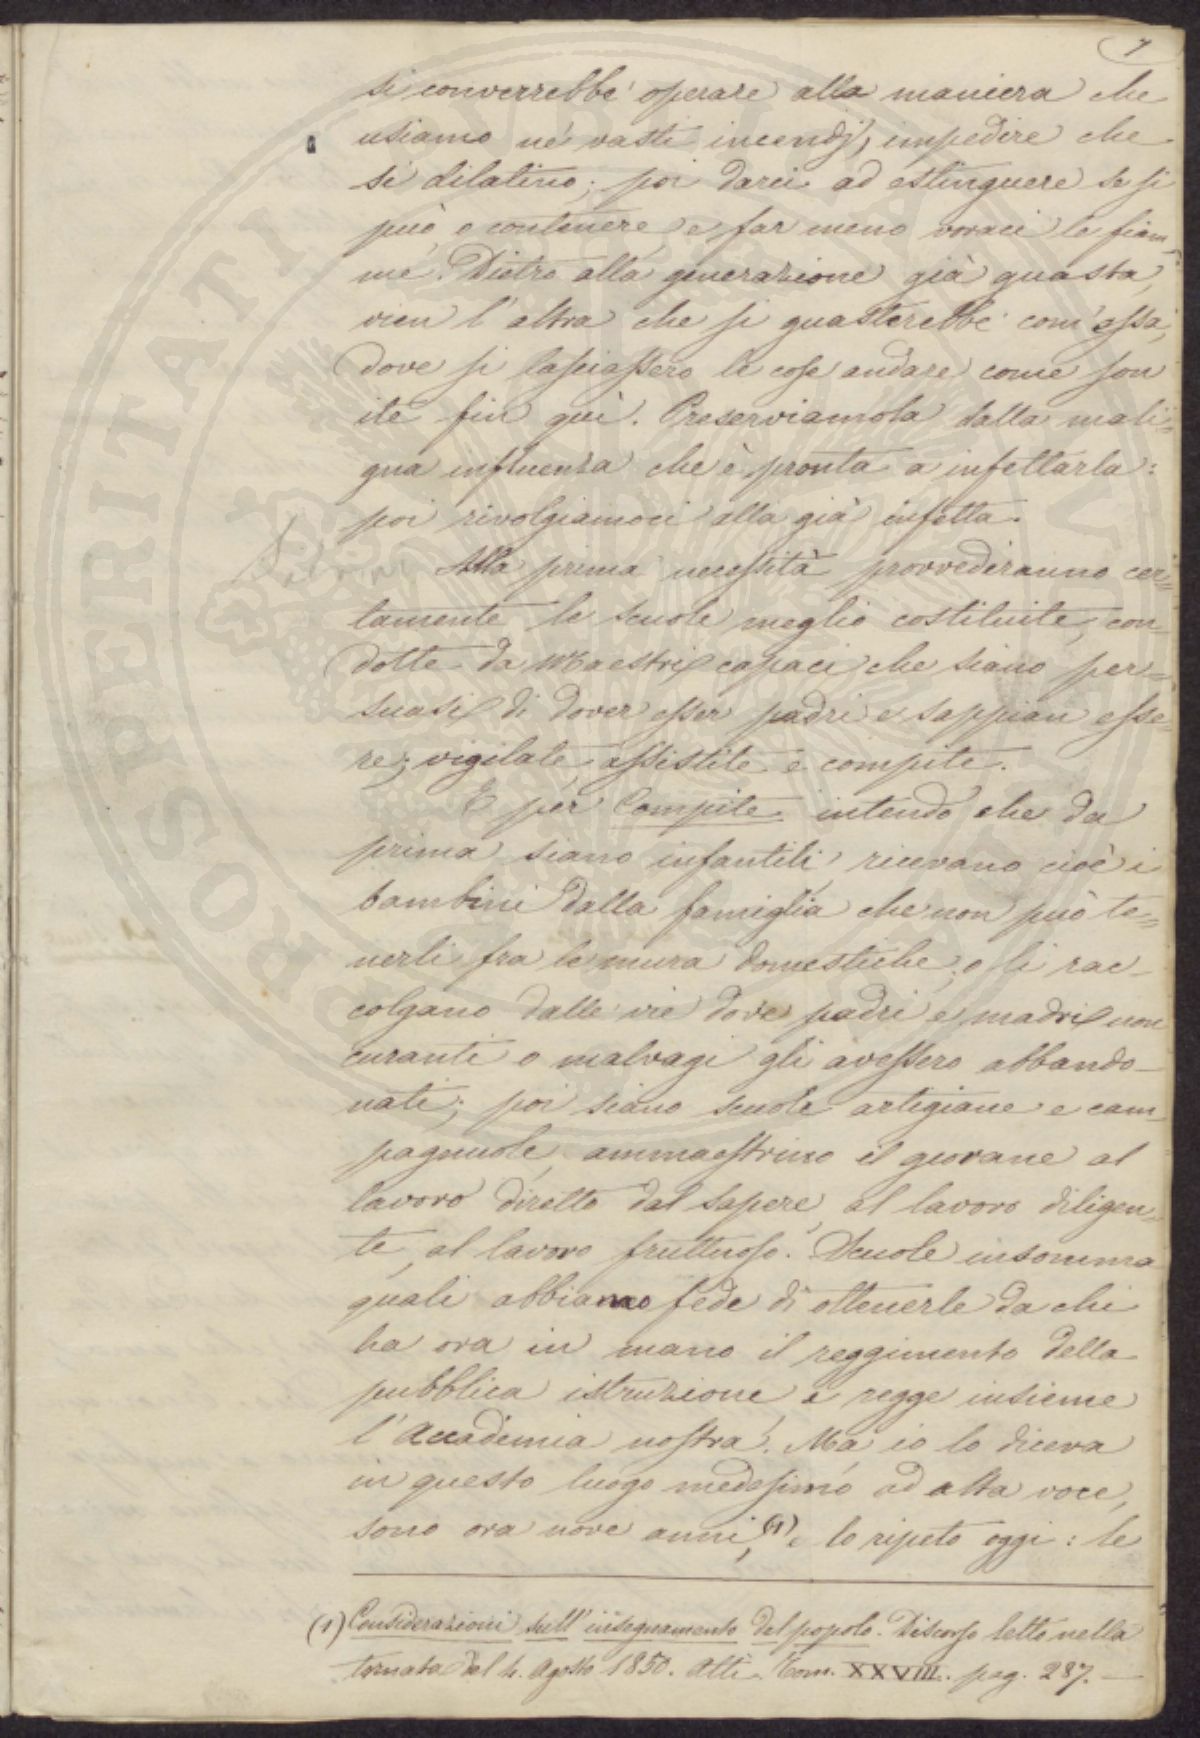 7
si converrebbe operare alla maniera che
usiamo ne' vasti incendj, impedire che
si dilatino; poi darci ad estinguere se si
può, o contenere, e far meno voraci le fiam
me. Dietro alla generazione già guasta,
vien l'altra che si guasterebbe com'essa,
dove si lasciassero le cose andare come son
ite fin quì. Preserviamola dalla mali=
gna influenza che è pronta a infettarla:
poi rivolgiamoci alla già infetta.
Alla prima necessità provvederanno cer=
tamente le scuole meglio costituite, con
dotte da Maestri capaci che siano per=
suasi di dover esser padri e sappian esse=
re; vigilate, assistite e compite.
E per Compite intendo che da
prima siano infantili, ricevano cioè i
bambini dalla famiglia che non può te=
nerli fra le mura domestiche, o li rac-
colgano dalle vie dove padri e madri non
curanti o malvagi gli avessero abbando-
nati; poi siano scuole artigiane e cam-
pagnuole, ammaestrino il giovane al
lavoro diretto dal sapere, al lavoro diligen=
te, al lavoro fruttuoso. Scuole insomma
quali abbiamo fede di ottenerle da chi
ha ora in mano il reggimento della
pubblica istruzione, e regge insieme
l'Accademia nostra. Ma io lo diceva
in questo luogo medesimo ad alta voce,
sono ora nove anni, (1) e lo ripeto oggi: le
(1) Considerazioni sull'insegnamento del popolo. Discorso letto nella
tornata del 4. Agosto 1850. Atti. Tom. XXVIII. pag. 287. —
PROSPERITATI PUBLICAE